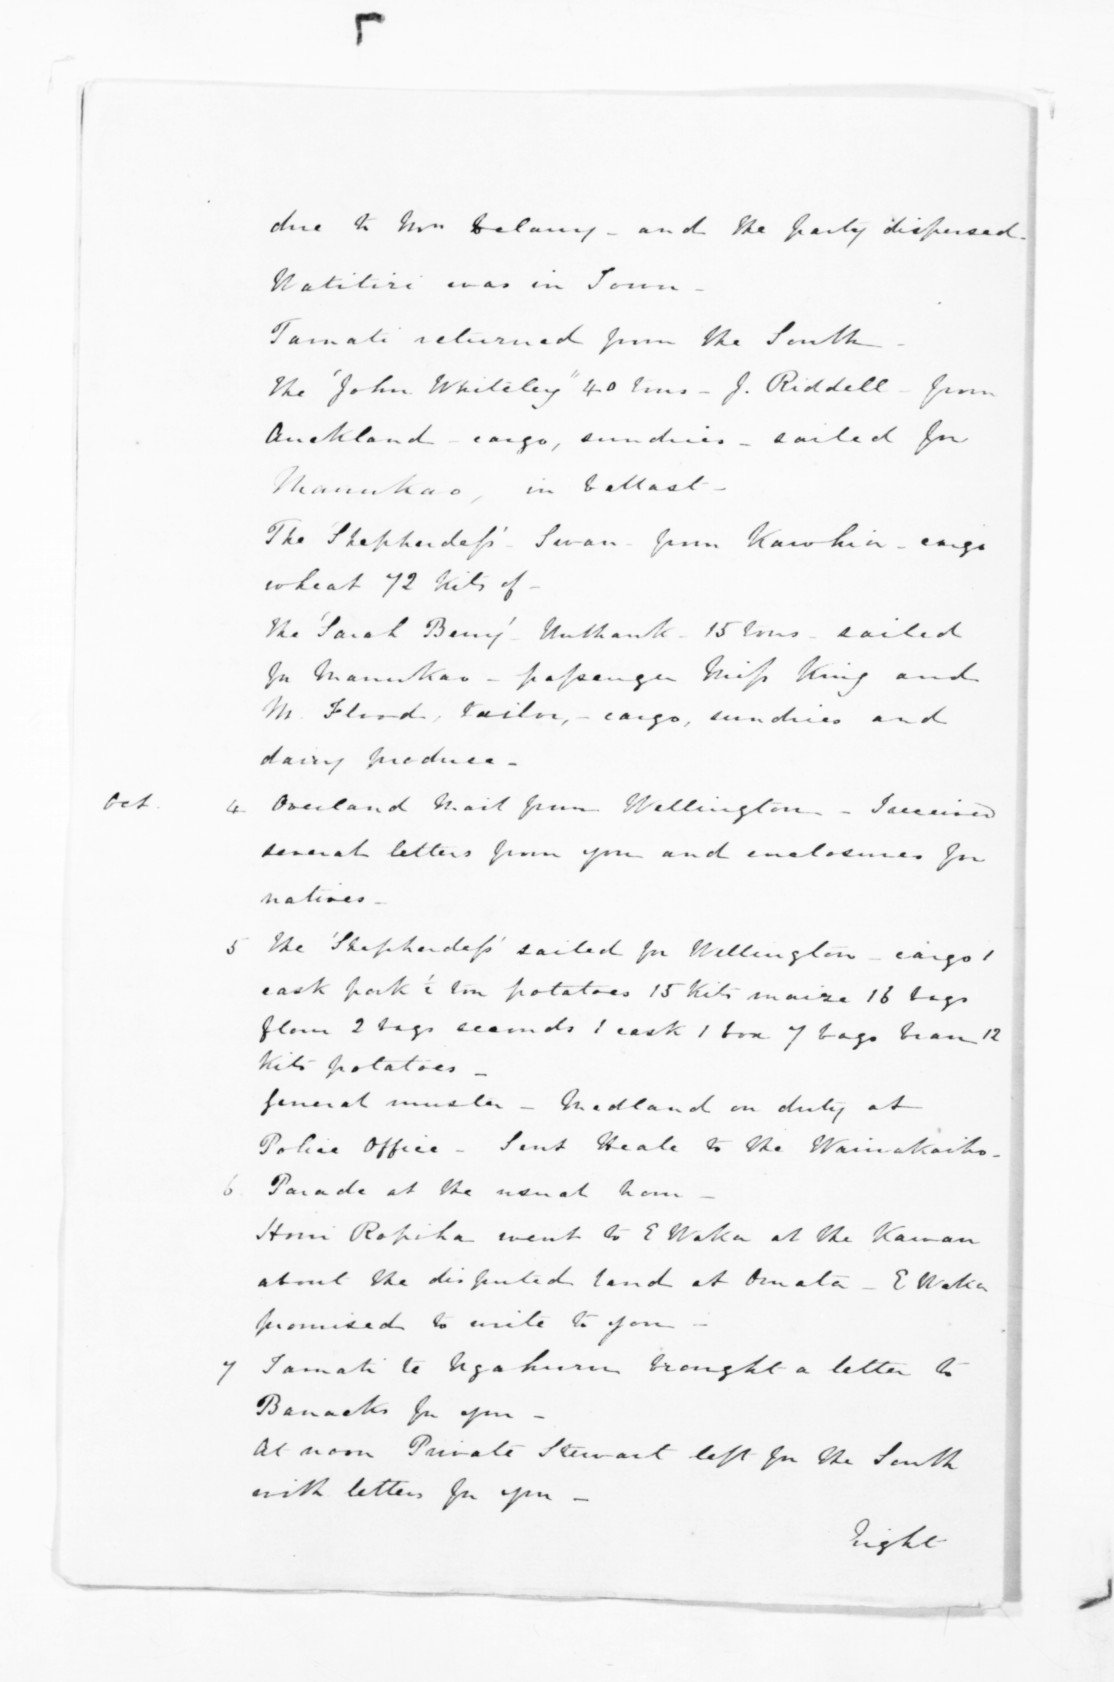 due to Mrs Delamy - and the party dispersed -
Watitiri was in Town -
Tamati returned from the South -
The "John Whiteley" 40 tons - J. Riddell - from
Auckland - cargo, sundries - sailed for
Manukao, in ballast -
The 'Shepherdess' - Swan - from Kawhia - cargo
wheat 72 kits of -
The 'Sarah Berry' - Unthank - 15 tons - sailed
for Manukao - passenger Miss King and
Mr. Flood, tailor, - cargo, sundries and
dairy produce -
Oct. 4 Overland Mail from Wellington - I received
several letters from you and enclosures for
natives -
5 The 'Shepherdess' sailed for Wellington - cargo 1
cask pork ton potatoes 15 kits maize 16 bags
flour 2 bags seconds 1 cask 1 box 7 bags bran 12
kits potatoes -
General muster - Medland on duty at
Police Office - Sent Heale to the Waiwakaiho -
6. Parade at the usual hour -
Honi Ropiha went to E Waka at the Kawau
about the disputed land at Omata - E Waka
promised to write to you -
7 Tamati te Ngahuru brought a letter to
Barracks for you -
At noon Private Stewart left for the South
with letters for you -
Eight